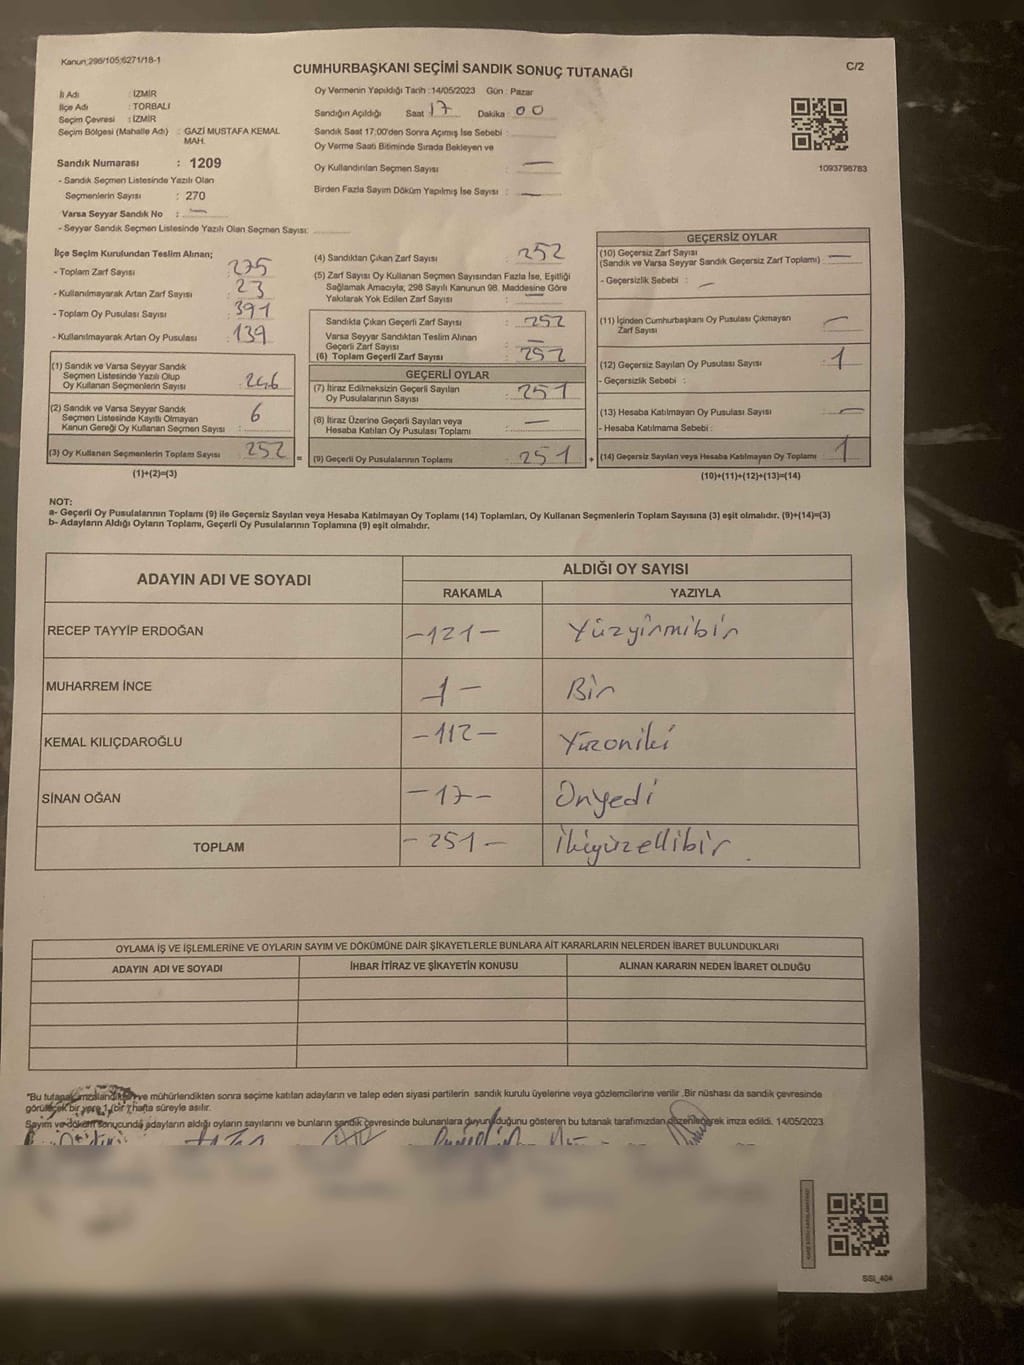 Kanun:298/105;6271/18-1
CUMHURBAŞKANI SEÇİMİ SANDIK SONUÇ TUTANAĞI
C/2
İli Adı : İZMİR
İlçe Adı : TORBALI
Seçim Çevresi : İZMİR
Seçim Bölgesi (Mahalle Adı) : GAZİ MUSTAFA KEMAL MAH.
Sandık Numarası : 1209
- Sandık Seçmen Listesinde Yazılı Olan
Seçmenlerin Sayısı : 270
Varsa Seyyar Sandık No : —
- Seyyar Sandık Seçmen Listesinde Yazılı Olan Seçmen Sayısı:
Oy Vermenin Yapıldığı Tarih :14/05/2023 Gün : Pazar
Sandığın Açıldığı Saat 17 Dakika : 00
Sandık Saat 17:00'den Sonra Açımış İse Sebebi :
Oy Verme Saati Bitiminde Sırada Bekleyen ve
Oy Kullandırılan Seçmen Sayısı : —
Birden Fazla Sayım Döküm Yapılmış İse Sayısı : —
1093796783
İlçe Seçim Kurulundan Teslim Alınan;
- Toplam Zarf Sayısı : 275
- Kullanılmayarak Artan Zarf Sayısı : 23
- Toplam Oy Pusulası Sayısı : 391
- Kullanılmayarak Artan Oy Pusulası : 139
(1) Sandık ve Varsa Seyyar Sandık
Seçmen Listesinde Yazılı Olup
Oy Kullanan Seçmenlerin Sayısı : 246
(2) Sandık ve Varsa Seyyar Sandık
Seçmen Listesinde Kayıtlı Olmayan
Kanun Gereği Oy Kullanan Seçmen Sayısı : 6
(3) Oy Kullanan Seçmenlerin Toplam Sayısı : 252
(1)+(2)=(3)
(4) Sandıktan Çıkan Zarf Sayısı : 252
(5) Zarf Sayısı Oy Kullanan Seçmen Sayısından Fazla İse, Eşitliği
Sağlamak Amacıyla, 298 Sayılı Kanunun 98. Maddesine Göre
Yakılarak Yok Edilen Zarf Sayısı : —
Sandıkta Çıkan Geçerli Zarf Sayısı : 252
Varsa Seyyar Sandıktan Teslim Alınan
Geçerli Zarf Sayısı : —
(6) Toplam Geçerli Zarf Sayısı : 252
GEÇERLİ OYLAR
(7) İtiraz Edilmeksizin Geçerli Sayılan
Oy Pusulalarının Sayısı : 251
(8) İtiraz Üzerine Geçerli Sayılan veya
Hesaba Katılan Oy Pusulası Toplamı : —
(9) Geçerli Oy Pusulalarının Toplamı : 251
=
+
GEÇERSİZ OYLAR
(10) Geçersiz Zarf Sayısı
(Sandık ve Varsa Seyyar Sandık Geçersiz Zarf Toplamı) : —
- Geçersizlik Sebebi : —
(11) İçinden Cumhurbaşkanı Oy Pusulası Çıkmayan
Zarf Sayısı : —
(12) Geçersiz Sayılan Oy Pusulası Sayısı : 1
- Geçersizlik Sebebi :
(13) Hesaba Katılmayan Oy Pusulası Sayısı : —
- Hesaba Katılmama Sebebi :
(14) Geçersiz Sayılan veya Hesaba Katılmayan Oy Toplamı : 1
(10)+(11)+(12)+(13)=(14)
NOT:
a- Geçerli Oy Pusulalarının Toplamı (9) ile Geçersiz Sayılan veya Hesaba Katılmayan Oy Toplamı (14) Toplamları, Oy Kullanan Seçmenlerin Toplam Sayısına (3) eşit olmalıdır. (9)+(14)=(3)
b- Adayların Aldığı Oyların Toplamı, Geçerli Oy Pusulalarının Toplamına (9) eşit olmalıdır.
ADAYIN ADI VE SOYADI
ALDIĞI OY SAYISI
RAKAMLA YAZIYLA
RECEP TAYYİP ERDOĞAN -121- Yüzyirmibir
MUHARREM İNCE 1- Bir
KEMAL KILIÇDAROĞLU -112- Yüzoniki
SİNAN OĞAN -17- Onyedi
TOPLAM -251- İkiyüzellibir
OYLAMA İŞ VE İŞLEMLERİNE VE OYLARIN SAYIM VE DÖKÜMÜNE DAİR ŞİKAYETLERLE BUNLARA AİT KARARLARIN NELERDEN İBARET BULUNDUKLARI
ADAYIN ADI VE SOYADI İHBAR İTİRAZ VE ŞİKAYETİN KONUSU ALINAN KARARIN NEDEN İBARET OLDUĞU
"Bu tutanak imzalandıktan ve mühürlendikten sonra seçime katılan adayların ve talep eden siyasi partilerin sandık kurulu üyelerine veya gözlemcilerine verilir .Bir nüshası da sandık çevresinde
görülecek bir yere 1 (bir) hafta süreyle asılır.
Sayım ve döküm sonucunda adayların aldığı oyların sayılarını ve bunların sandık çevresinde bulunanlara duyurulduğunu gösteren bu tutanak tarafımızdan düzenlenerek imza edildi. 14/05/2023
SSİ_404